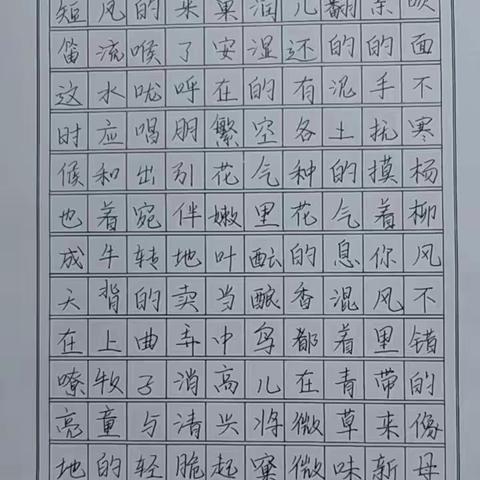 吹面不寒杨柳风不错的像母
亲的手扰摸着你风里带来新
翻的泥土的气息混着青草味
儿还有各种花的香都在微微
润湿的空气里酝酿鸟儿将窠
巢安在繁花嫩叶当中高兴起
来了呼朋引伴地卖弄消清脆
的喉咙唱出宛转的曲子与轻
风流水应和着牛背上牧童的
短笛这时候也成天在嘹亮地